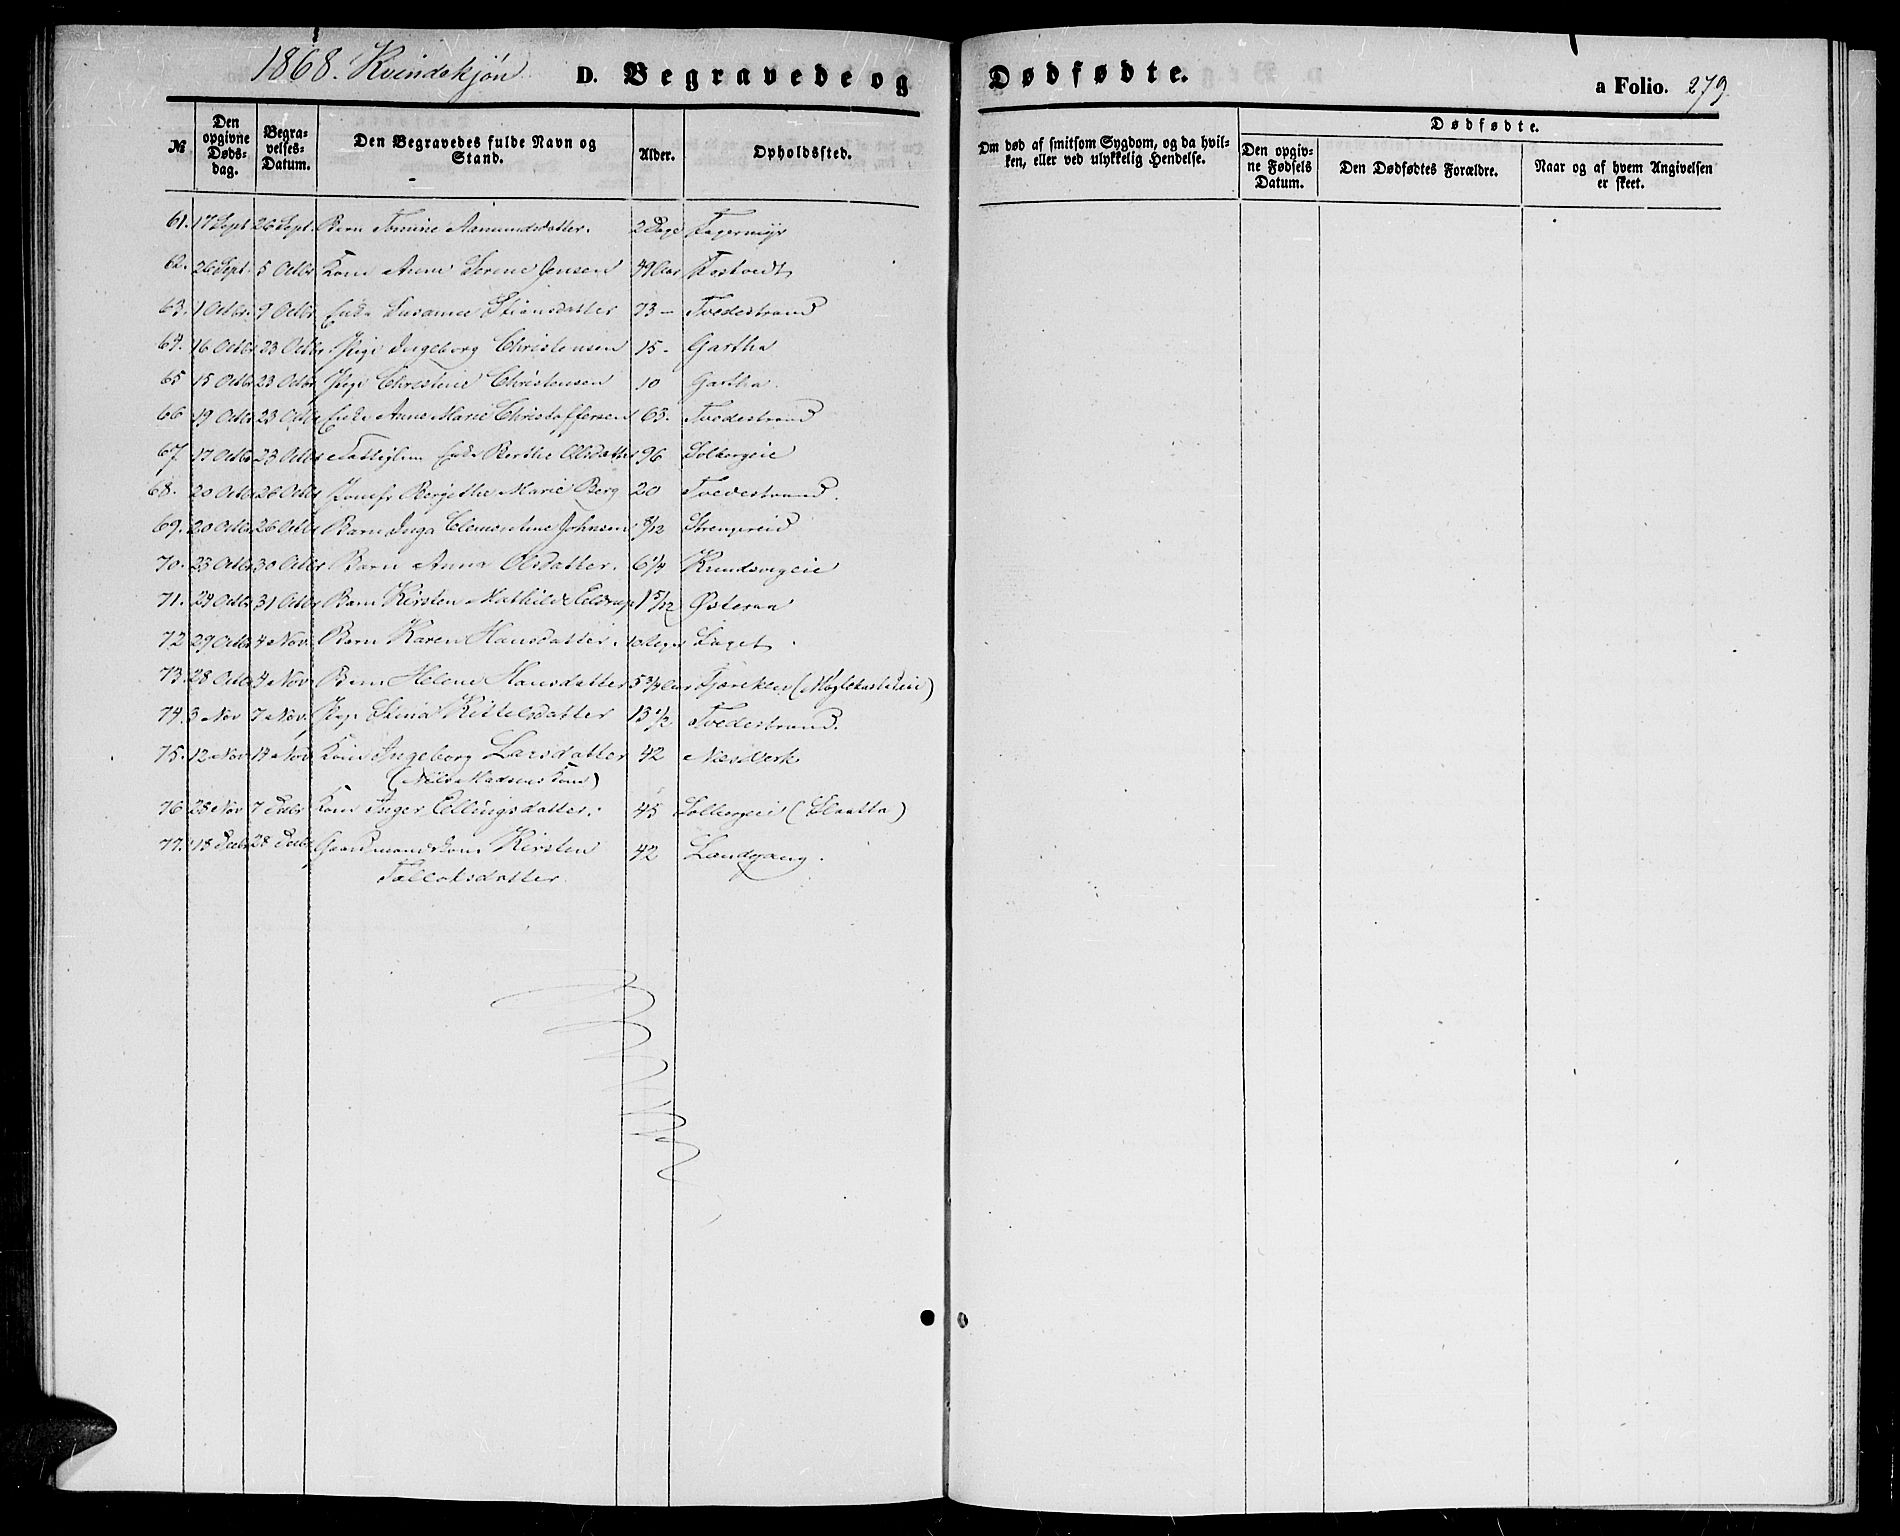 1868. Kvindekjøn D. Begravede og Dødfødte. a Folio. 279.
№ Den opgivne Døds-dag. Begra-velses-Datum. Den Begravedes fulde Navn og Stand. Alder. Opholdssted. Om død af smitsom Sygdom, og da hvil-ken, eller ved ulykkelig Hendelse. Dødfødte. Den opgiv-ne Fødsels Datum. Den Dødfødtes Forældre. Naar og af hvem Angivelsen er skeet.
61. 17 Sept 26 Sept. Barn Tomine Aamundsdatter. 2 Dage Fagermyr
62. 26 Sept. 5 Octbr Kone Anne Serine Jensen 49 Aar Fostvedt
63. 1 Octbr. 9 Octbr Enke Susanne Stiansdatter 73 — Tvedestrand
64. 16 Octbr 23 Octbr Pige Ingeborg Christensen 15 - Gartha
65 15 Octbr 23 Octbr Pige Christine Christensen 10 Gartha.
66 19 Octbr 23 Octbr Enke Anne Marie Christoffersen 63. Tvedestrand
67. 17 Octbr 23 Octbr Fattiglem Enke Berthe Olsdatter 96 Solbergeie
68. 20 Octbr 26 Octbr Jomfr Bergithe Marie Berg 20 Tvedestrand.
69. 20 Octbr 26 Octbr Barn Inga Clementine Johnsen 8/12 Strengereid
70. 23 Octbr 30 Octbr Barn Anna Olsdatter. 6 1/4 Knudsvigeie
71. 24 Octbr 31 Octbr Barn Kirsten Mathilde 1 5/12 Østeraa
72 29 Octbr 4 Nov. Barn Karen Hansdatter. Laget.
73. 28 Octbr 4 Nov Barn Helene Hansdatter 5 3/4 Aar
74. 3 Nov 7 Nov. Pige Stina Kittelsdatter 13 1/2 Tvedestrand.
75. 12 Nov 14 Nov Kone Ingeborg Larsdatter 42 Næs Værk
(Niels Madsens Kone)
76 28 Nov 7 Decbr Kone Inger Ellingsdatter. 45 Solbergeie (Slaatta)
77. 18 Decbr 28 Decbr Gaardmandskone Kirsten 42 Landgang.
Tallaksdatter.